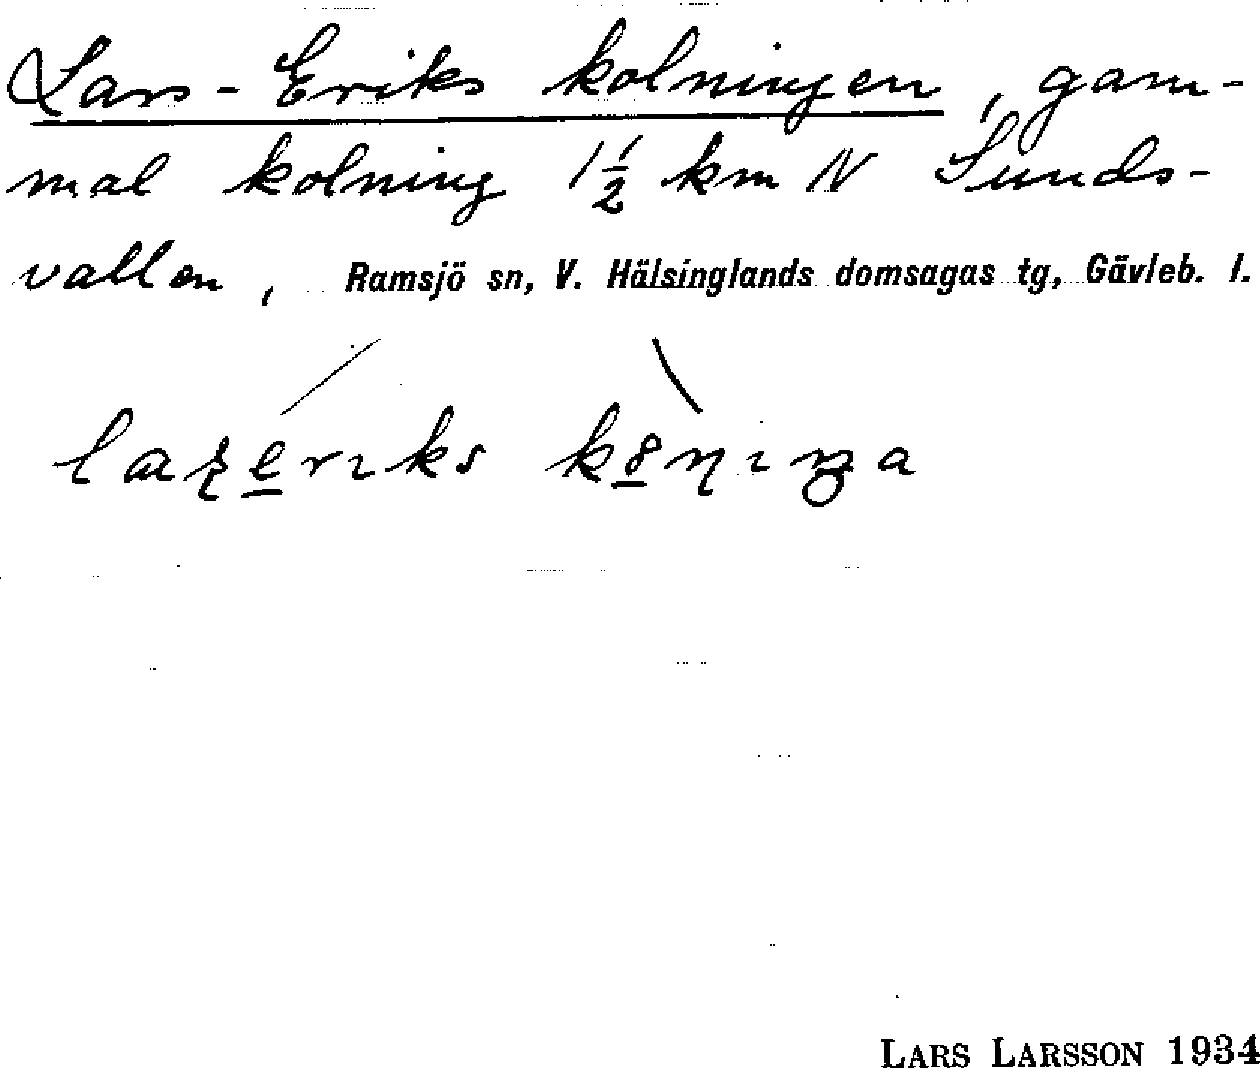 Lars-Eriks kolningen, gam-
mal kolning 1½ km N Sunds-
vallen, Ramsjö sn, V. Hälsinglands domsagas tg, Gävleb. l.
LARS LARSSON 1934